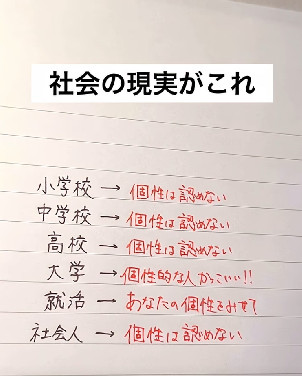 社会の現実がこれ
小学校 → 個性は認めない
中学校 → 個性は認めない
高校 → 個性は認めない
大学 → 個性的な人がかっこいい!!
就活 → あなたの個性をみせて
社会人 → 個性は認めない